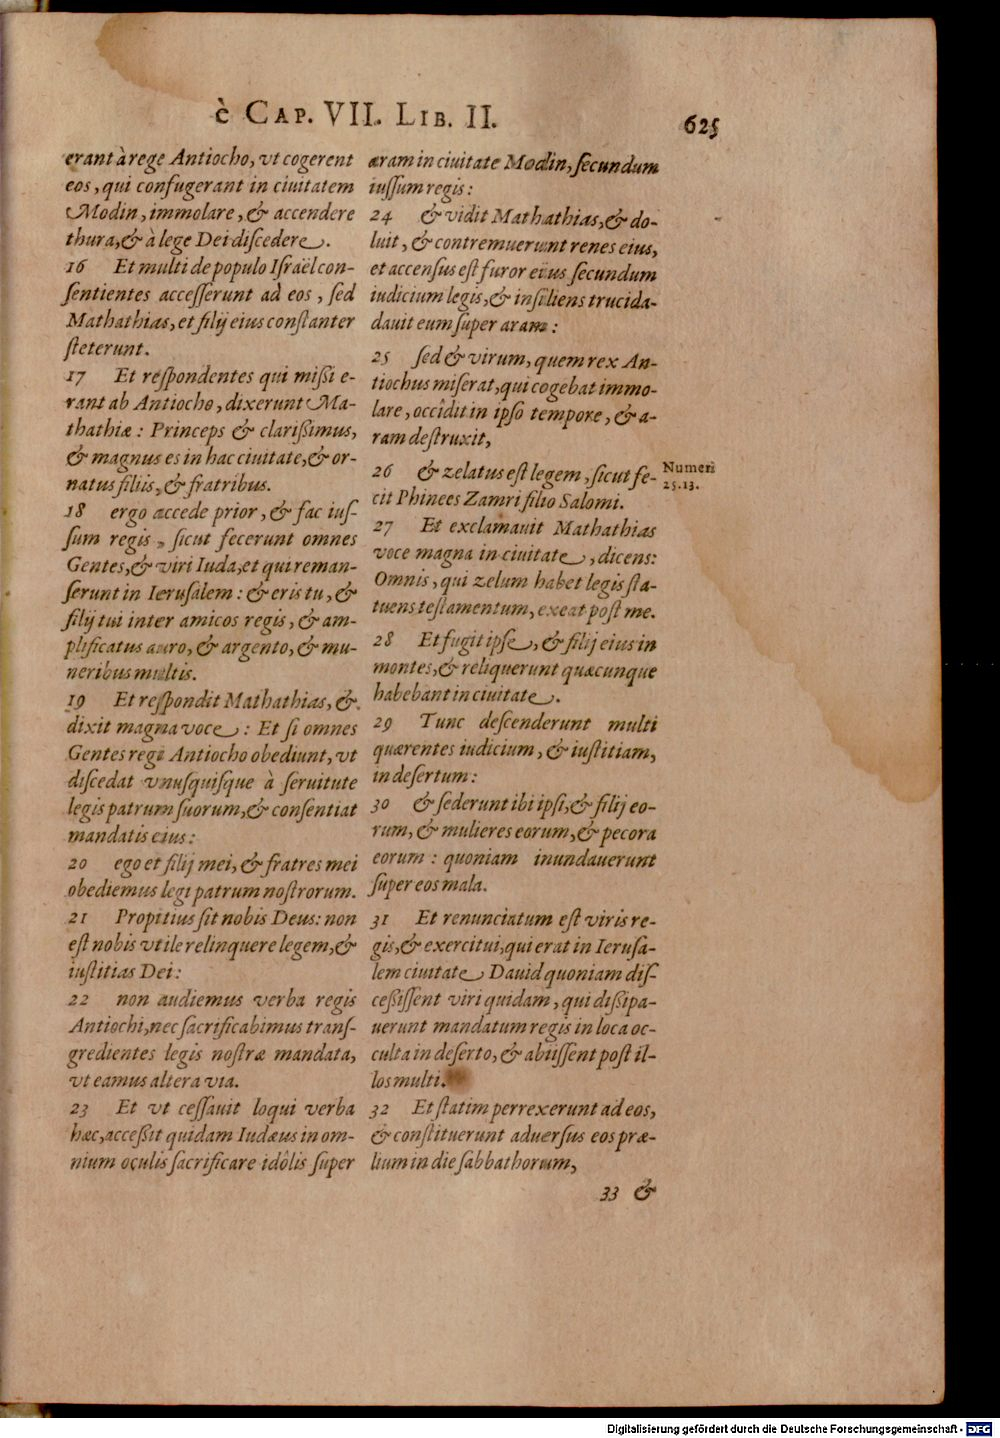 è CAP. VII. LIB. II.
625
erant à rege Antiocho, vt cogerent
eos, qui confugerant in ciuitatem
Modin, immolare, & accendere
thura, & à lege Dei diſcedere.
16 Et multi de populo Iſraël con-
ſentientes acceſſerunt ad eos, ſed
Mathathias, et filij eius conſtanter
ſteterunt.
17 Et reſpondentes qui mißi e-
rant ab Antiocho, dixerunt Ma-
thathiæ: Princeps & clarißimus,
& magnus es in hac ciuitate, & or-
natus filiis, & fratribus.
18 ergo accede prior, & fac iuſ-
ſum regis, ſicut fecerunt omnes
Gentes, & viri Iuda, et qui reman-
ſerunt in Ieruſalem: & eris tu, &
filij tui inter amicos regis, & am-
plificatus auro, & argento, & mu-
neribus multis.
19 Et reſpondit Mathathias, &
dixit magna voce: Et ſi omnes
Gentes regi Antiocho obediunt, vt
diſcedat vnuſquiſque à ſeruitute
legis patrum ſuorum, & conſentiat
mandatis eius:
20 ego et filij mei, & fratres mei
obediemus legi patrum noſtrorum.
21 Propitius ſit nobis Deus: non
eſt nobis vtile relinquere legem, &
iuſtitias Dei:
22 non audiemus verba regis
Antiochi, nec ſacrificabimus tranſ-
gredientes legis noſtræ mandata,
vt eamus altera via.
23 Et vt ceſſauit loqui verba
hæc, acceßit quidam Iudæus in om-
nium oculis ſacrificare idôlis ſuper
aram in ciuitate Modin, ſecundum
iuſſum regis:
24 & vidit Mathathias, & do-
luit, & contremuerunt renes eius,
et accenſus eſt furor eius ſecundum
iudicium legis, & inſiliens trucida-
dauit eum ſuper aram:
25 ſed & virum, quem rex An-
tiochus miſerat, qui cogebat immo-
lare, occîdit in ipſo tempore, & a-
ram deſtruxit,
26 & zelatus eſt legem, ſicut fe-
cit Phinees Zamri filio Salomi.
Numeri
25.13.
27 Et exclamauit Mathathias
voce magna in ciuitate, dicens:
Omnis, qui zelum habet legis ſta-
tuens teſtamentum, exeat poſt me.
28 Et fugit ipſe, & filij eius in
montes, & reliquerunt quæcunque
habebant in ciuitate.
29 Tunc deſcenderunt multi
quærentes iudicium, & iuſtitiam,
in deſertum:
30 & ſederunt ibi ipſi, & filij eo-
rum, & mulieres eorum, & pecora
eorum: quoniam inundauerunt
ſuper eos mala.
31 Et renunciatum eſt viris re-
gis, & exercitui, qui erat in Ieruſa-
lem ciuitate Dauid quoniam diſ-
ceßiſſent viri quidam, qui dißipa-
uerunt mandatum regis in loca oc-
culta in deſerto, & abiiſſent poſt il-
los multi.
32 Et ſtatim perrexerunt ad eos,
& conſtituerunt aduerſus eos præ-
lium in die ſabbathorum,
33 &
Digitalisierung gefördert durch die Deutsche Forschungsgemeinschaft - DFG